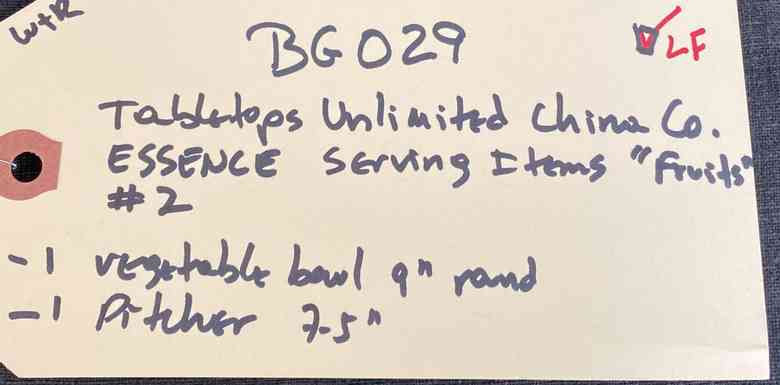 W+R
BG029
LF
Tabletops Unlimited China Co.
ESSENCE Serving Items "Fruits"
#2
-1 vegetable bowl 9" round
-1 Pitcher 7.5"